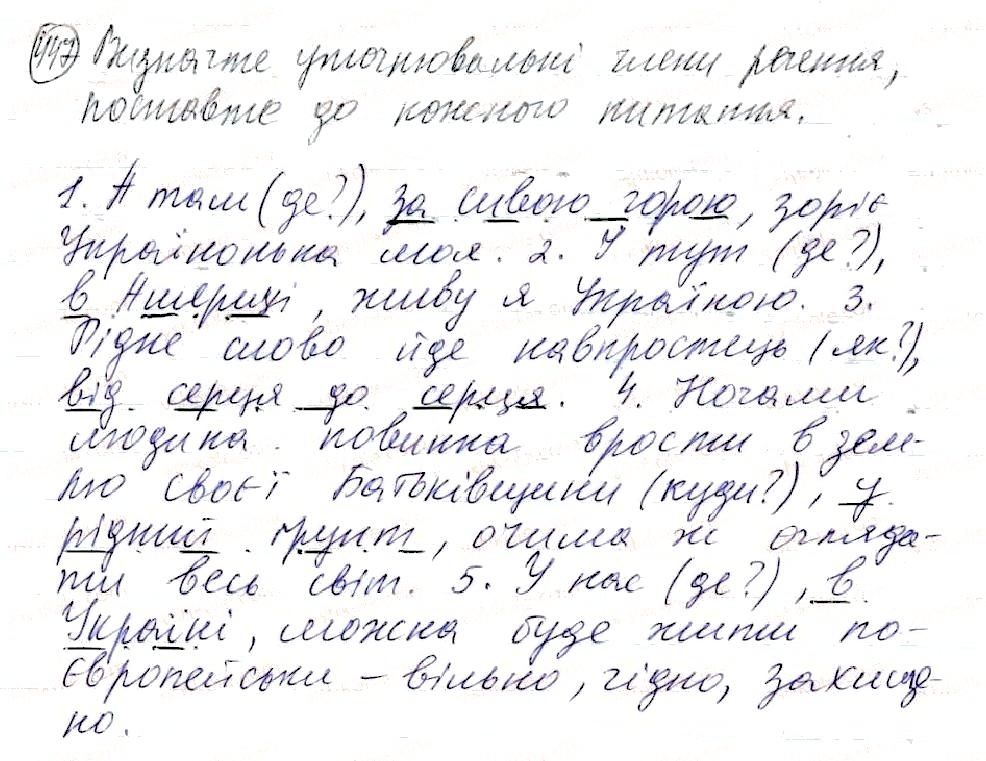 447 Визначте уточнювальні члени речення,
поставте до кожного питання.
1. А там (де?), за сивою горою, зоріє
Українонька моя. 2. І тут (де?),
в Америці, живу я Україною. 3.
Рідне слово йде навпростець (як?),
від серця до серця. 4. Ногами
людина повинна врости в зем-
лю своєї Батьківщини (куди?), у
рідний ґрунт, очима ж огляда-
ти весь світ. 5. У нас (де?), в
Україні, можна буде жити по-
європейськи – вільно, гідно, захище-
но.